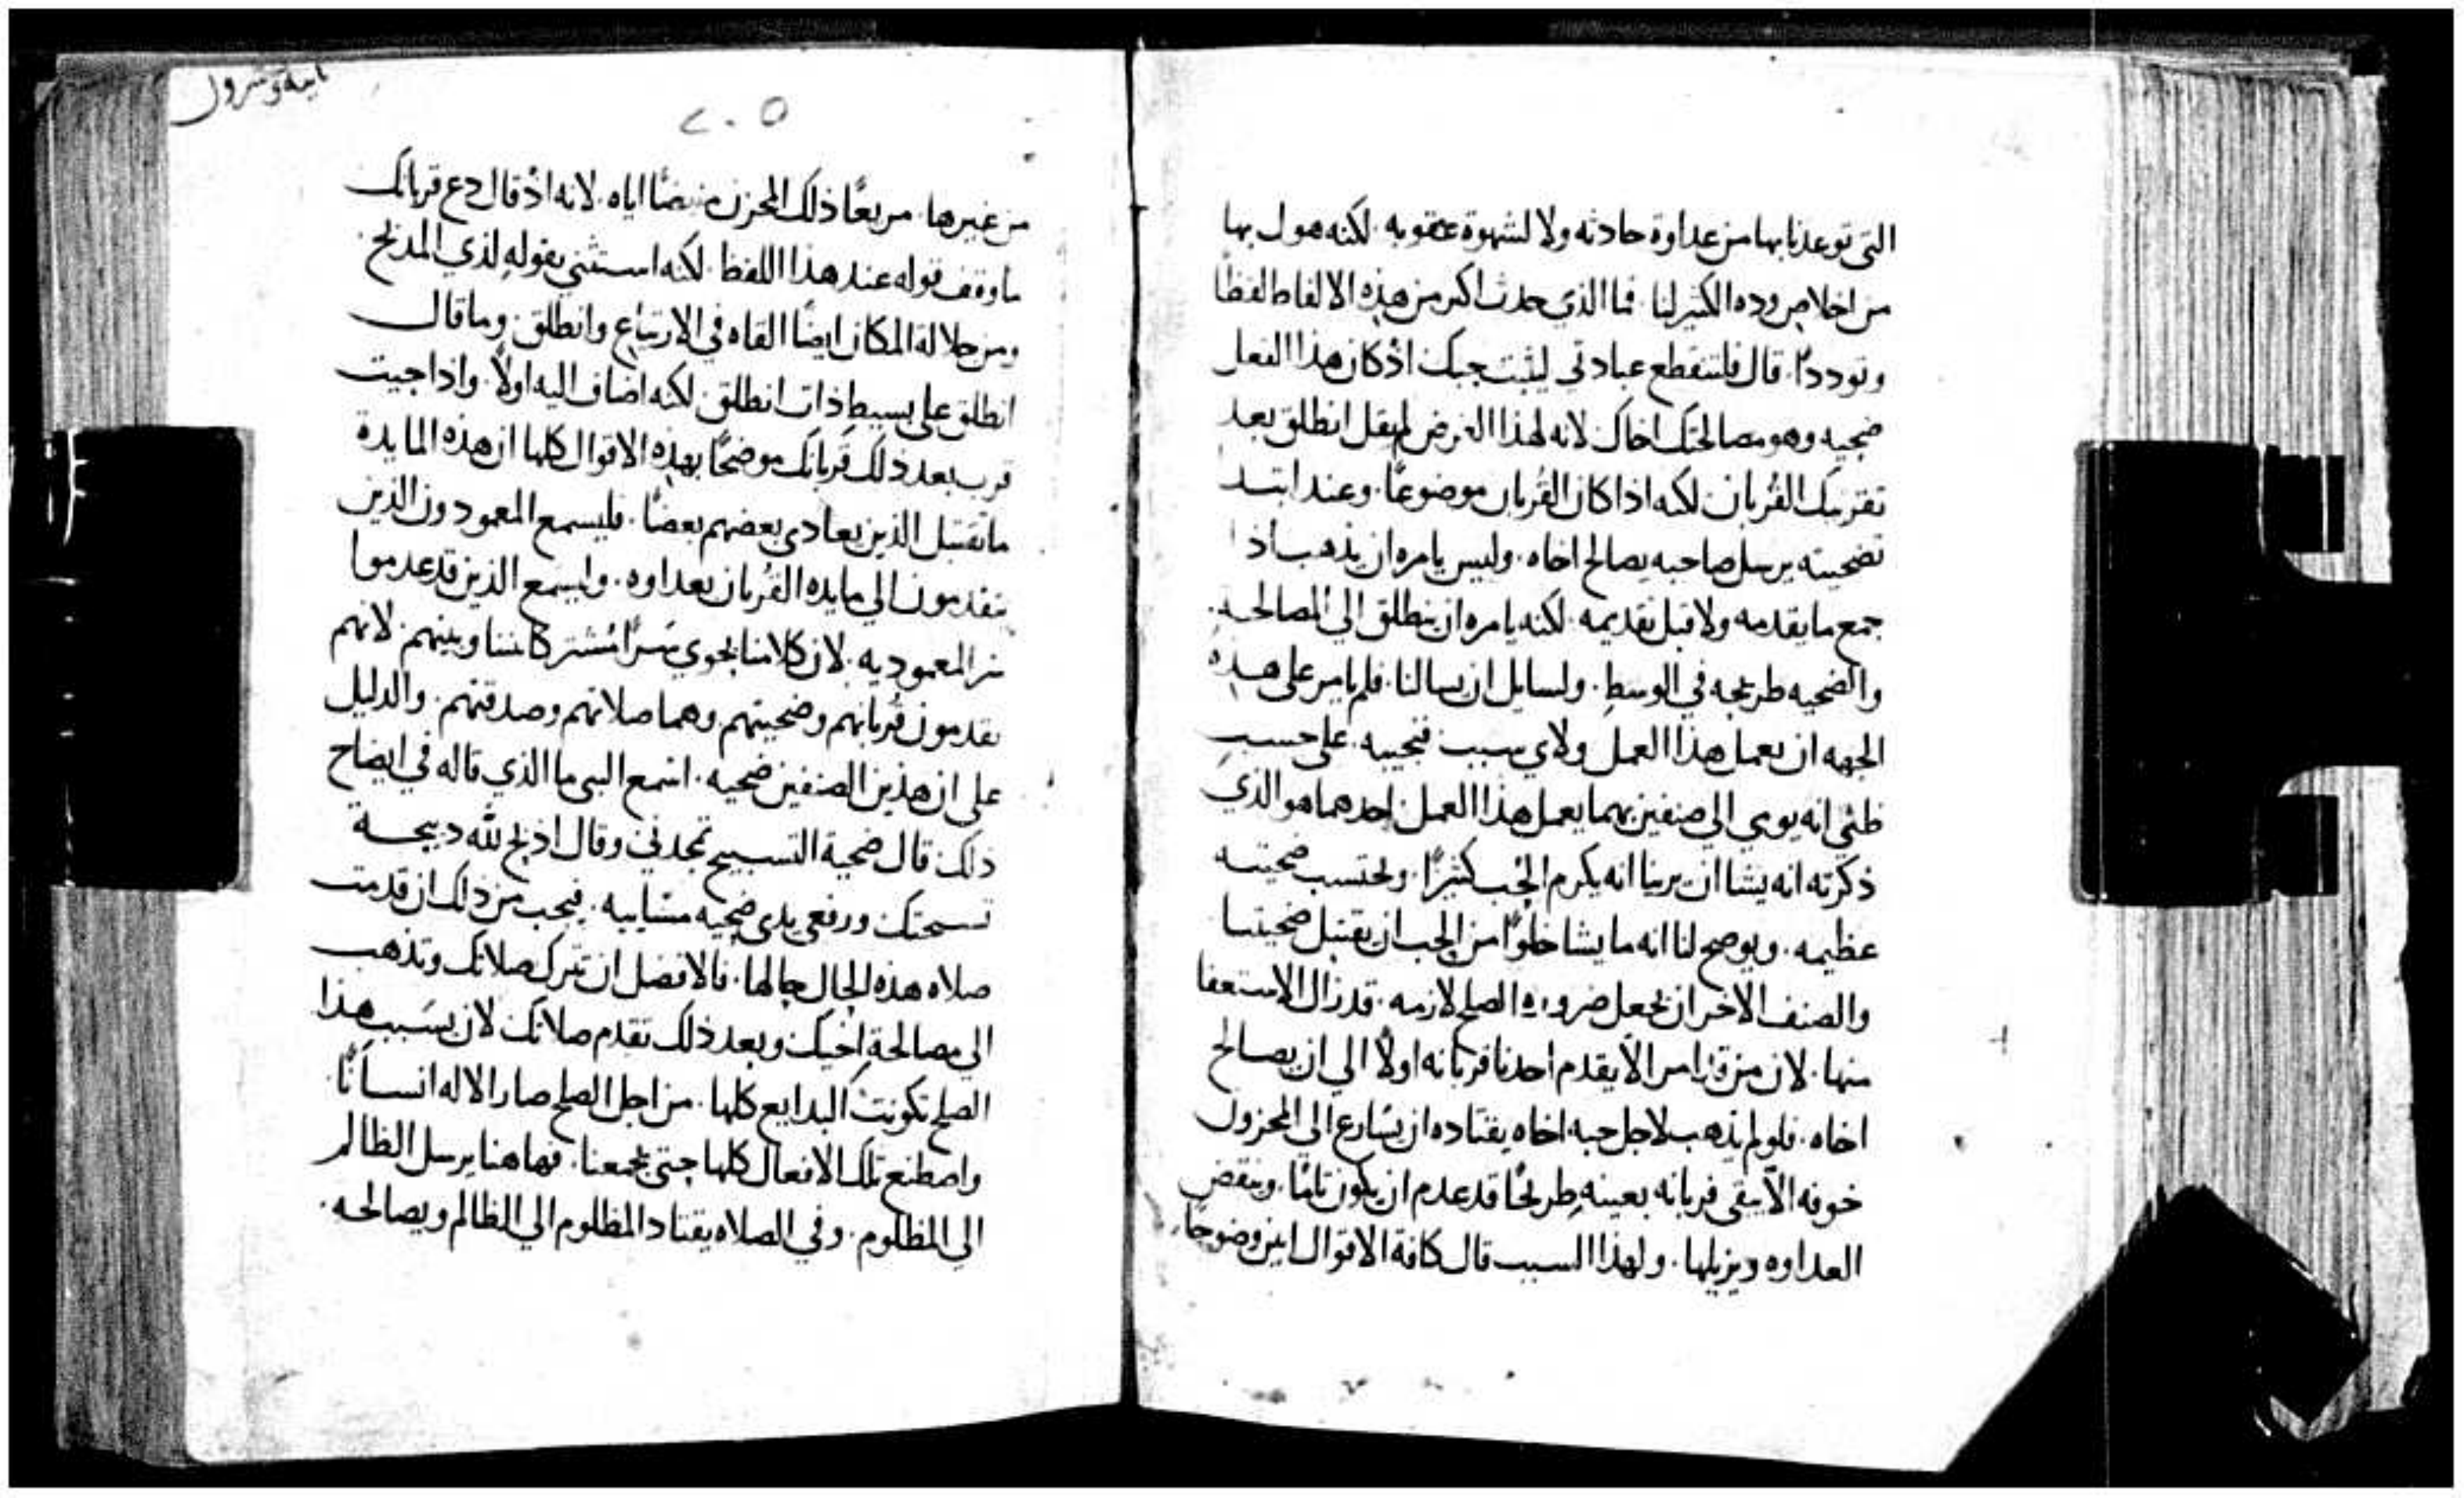 التي توعدنا بها من عداوة حادثه ولا لشهوة عقوبه. لكنه هول بها
من اخلاص وده الكثير لنا. فما الذي حدث اكبر من هذه الالفاظ لفظًا
وتوددًا. قال فلتنقطع عبادتي ليثبت حبك اذ كان هذا الفعل
ضحيه وهو مصالحتك اخاك لانه لهذا الغرض لم يقل انطلق بعد
تقريبك القُربان لكنه اذا كان القُربان موضوعًا. وعند ابتدا
تضحيته يرسل صاحبه يصالح اخاه. وليس يامره ان يذهب اذا
جمع ما يقدمه ولا قبل تقديمه. لكنه يامره ان ينطلق الي المصالحه
والضحيه طريحه في الوسط. ولسايل ان يسالنا. فلم يامر علي هذه
الجهه ان يعمل هذا العمل ولاي سبب فنجيبه. علي حسب
ظني انه يومي الي صنفين بهما يعمل هذا العمل احدهما هو الذي
ذكرته انه يشا ان يرينا انه يكرم الحُب كثيرًا. ويحتسب ضحيته
عظيمه. ويوضح لنا انه ما يشا خلوًا من الحب ان يقتبل ضحيتنا
والصنف الاخر ان يجعل ضروره الصلح لازمه. قد زال الاستعفا
منها. لان من قد امر الاّ يقدم احدنا قربانه اولًا الي ان يصالح
اخاه. فلو لم يذهب لاجل حبه اخاه يقتاده ان يُسارع الي المحزون
خوفه الاّ يبقي قربانه بعينه طريحًا قد عدم ان يكون تامًا. وينقض
العداوه ويزيلها. ولهذا السبب قال كافة الاقوال ابين وضوحًا
٢٠٥
من غيرها. مريعًا ذلك المحزن اياه. لانه اذ قال دع قربانك
ما وقف قوله عند هذا اللفظ. لكنه استثني بقوله لذي المذبح
ومن جلالة المكان ايضًا القاه في الارتياع وانطلق. وما قال
انطلق علي بسيط ذات انطلق. لكنه اضاف اليه اولًا. واذا جيت
قرب بعد ذلك قربانك موضحًا بهذه الاقوال كلها ان هذه المايدة
ما تقتبل الذين يعادي بعضهم بعضًا. فليسمع المعمودون الذين
يتقدمون الي مايده القُربان بعداوه. وليسمع الذين قد عدموا
سر المعموديه. لان كلامنا يحوي سرًا مُشتركًا بيننا وبينهم. لانهم
يقدمون قُربانهم وضحيتهم وهما صلاتهم وصدقتهم. والدليل
علي ان هذين الصنفين ضحيه. اسمع النبي ما الذي قاله في ايضاح
ذلك قال ضحية التسبيح تمجدني وقال اذبح لله ذبيحة
تسبحتك ورفعي يدي ضحيه مسَاييه. فيجب من ذلك ان قدمت
صلاه هذه الحال حالها. فالافضل ان تترك صلاتك وتذهب
الي مصالحة اخيك وبعد ذلك تقدم صلاتك لان بسَبب هذا
الصلح تكونت البدايع كلها. من اجل الصلح صار الاله انسانًا
واصطنع تلك الافعال كلها حتي يجمعنا. فهاهنا يرسل الظالم
الي المظلوم. وفي الصلاه يقتاد المظلوم الي الظالم ويصالحه.